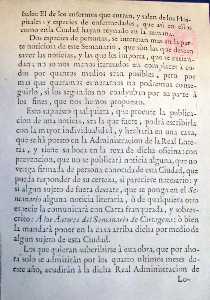 feslo: El de los enfermos que entran, y salen de los Hos-
pitales: y especies de enfermedades, que asi en ellos
como en esta Ciudad hayan reynado en la semana.
Dos especies de personas, se interesan mas en la par-
te noticiosa de este Semanario, que son las que desean
saber las noticias, y las que les importa, que se
no unas mas cartas
dos por quantos medios sean posibles, pero por
mas que queramos no podremos conse-
guirlo, si los segundos no coadyuvan por su parte à
los fines, que nos hemos propuesto.
Esto supuesto qualquiera, que pretenda la publica-
cion de una noticia, sea la que fuere, podrá escribirla
con la mayor individualidad, y hecharla en una caxa,
que se há puesto en la Administracion de la Real Lote-
ría, y tiene su boca en la rexa de dicha oficina:
prevencion, que no se publicará noticia alguna, que no
venga firmada de persona conocida de esta Ciudad, que
pueda responder de su certeza, si pareciere necesario: y
si algun sujeto de fuera deseare, que se ponga en el Se-
manario alguna noticia literaria, ó de qualquiera otra
especie la comunicará con Carta franqueada, y sobre-
crito: A los Autores del Semanario de Cartagena: ó bien
la mandará poner en la caxa arriba dicha por medio de
algun sujeto de esta Ciudad.
Los que quieran subscribirse à esta obra, que por aho-
ra solo se admitirán por los quatro ultimos meses de
este año, acudirán à la dicha Real Administracion de
Lo-